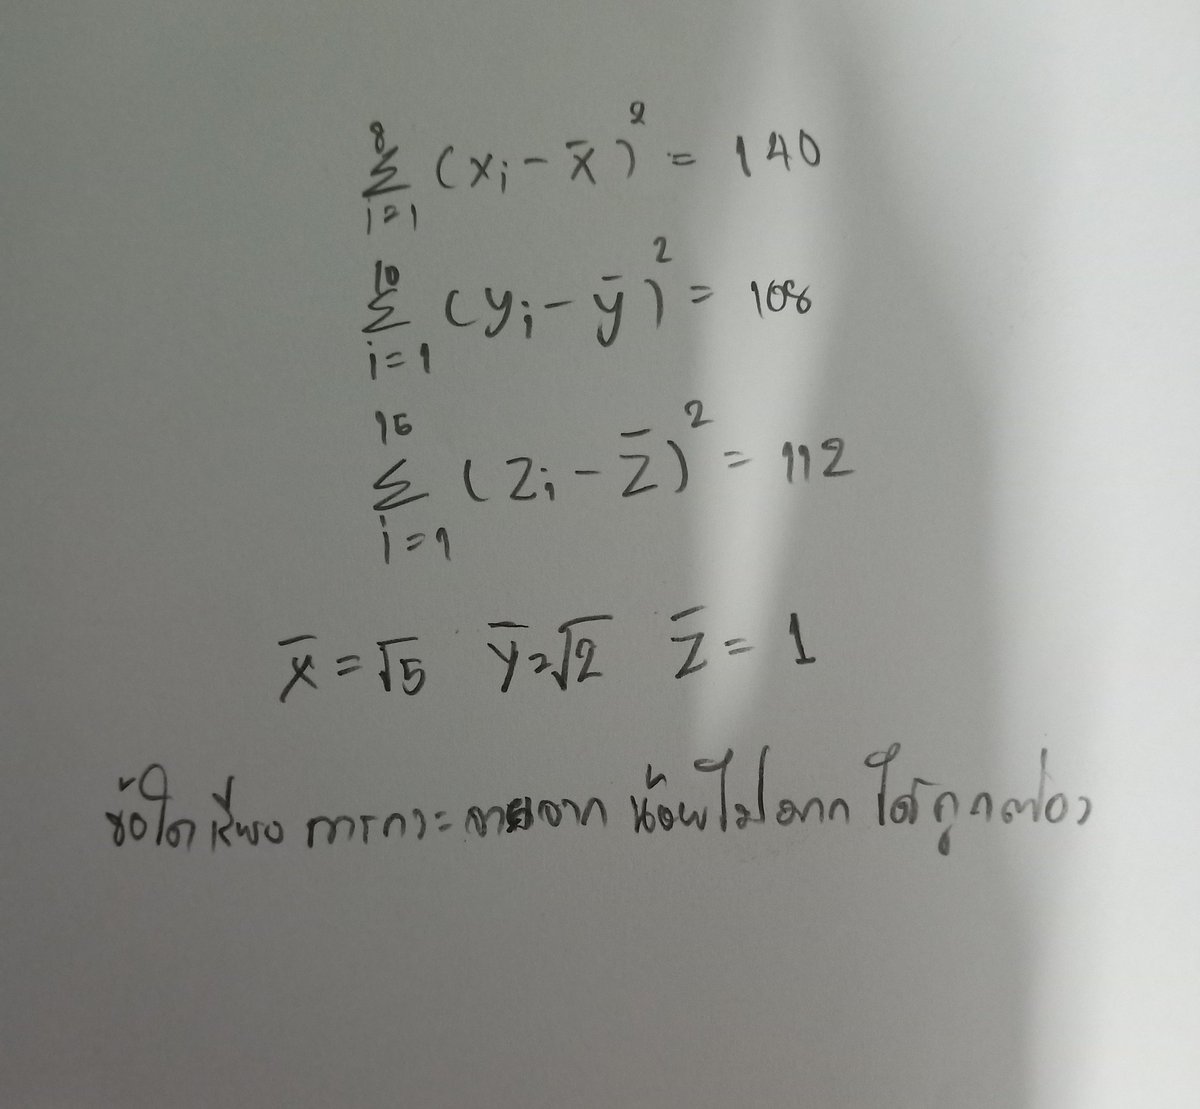 8
Σ (xᵢ - x̄)² = 140
i=1
10
Σ (yᵢ - ȳ)² = 108
i=1
15
Σ (zᵢ - z̄)² = 112
i=1
x̄ = √5 ȳ = √2 z̄ = 1
ข้อใดเรียง การกระจายจาก น้อยไปมาก ได้ถูกต้อง